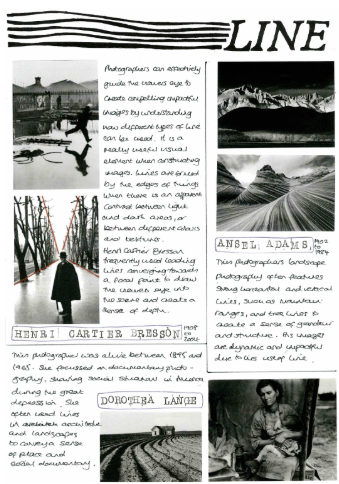 LINE
Photographers can effectively
guide the viewers eye to
create compelling impactful
images by understanding
how different types of line
can be used. It is a
really useful visual
element when constructing
images. Lines are formed
by the edges of things
when there is an apparent
contrast between light
and dark areas, or
between different colours
and textures.
Henri Cartier Bresson
frequently used leading
lines converging towards
a focal point to draw
the viewers eye into
the scene and create a
sense of depth.
HENRI CARTIER BRESSON 1908
to
2004
ANSEL ADAMS, 1902
to
1984
This photographers landscape
photography often features
strong horizontal and vertical
lines, such as mountain
ranges, and tree lines to
create a sense of grandeur
and structure. His images
are dynamic and impactful
due to his use of line.
This photographer was alive between 1895 and
1965. She focussed on documentary photo-
graphy, showing social situation in America
during the great
depression. She
often used lines
in architecture
and landscapes
to convey a sense
of place and
social documentary.
DOROTHEA LANGE